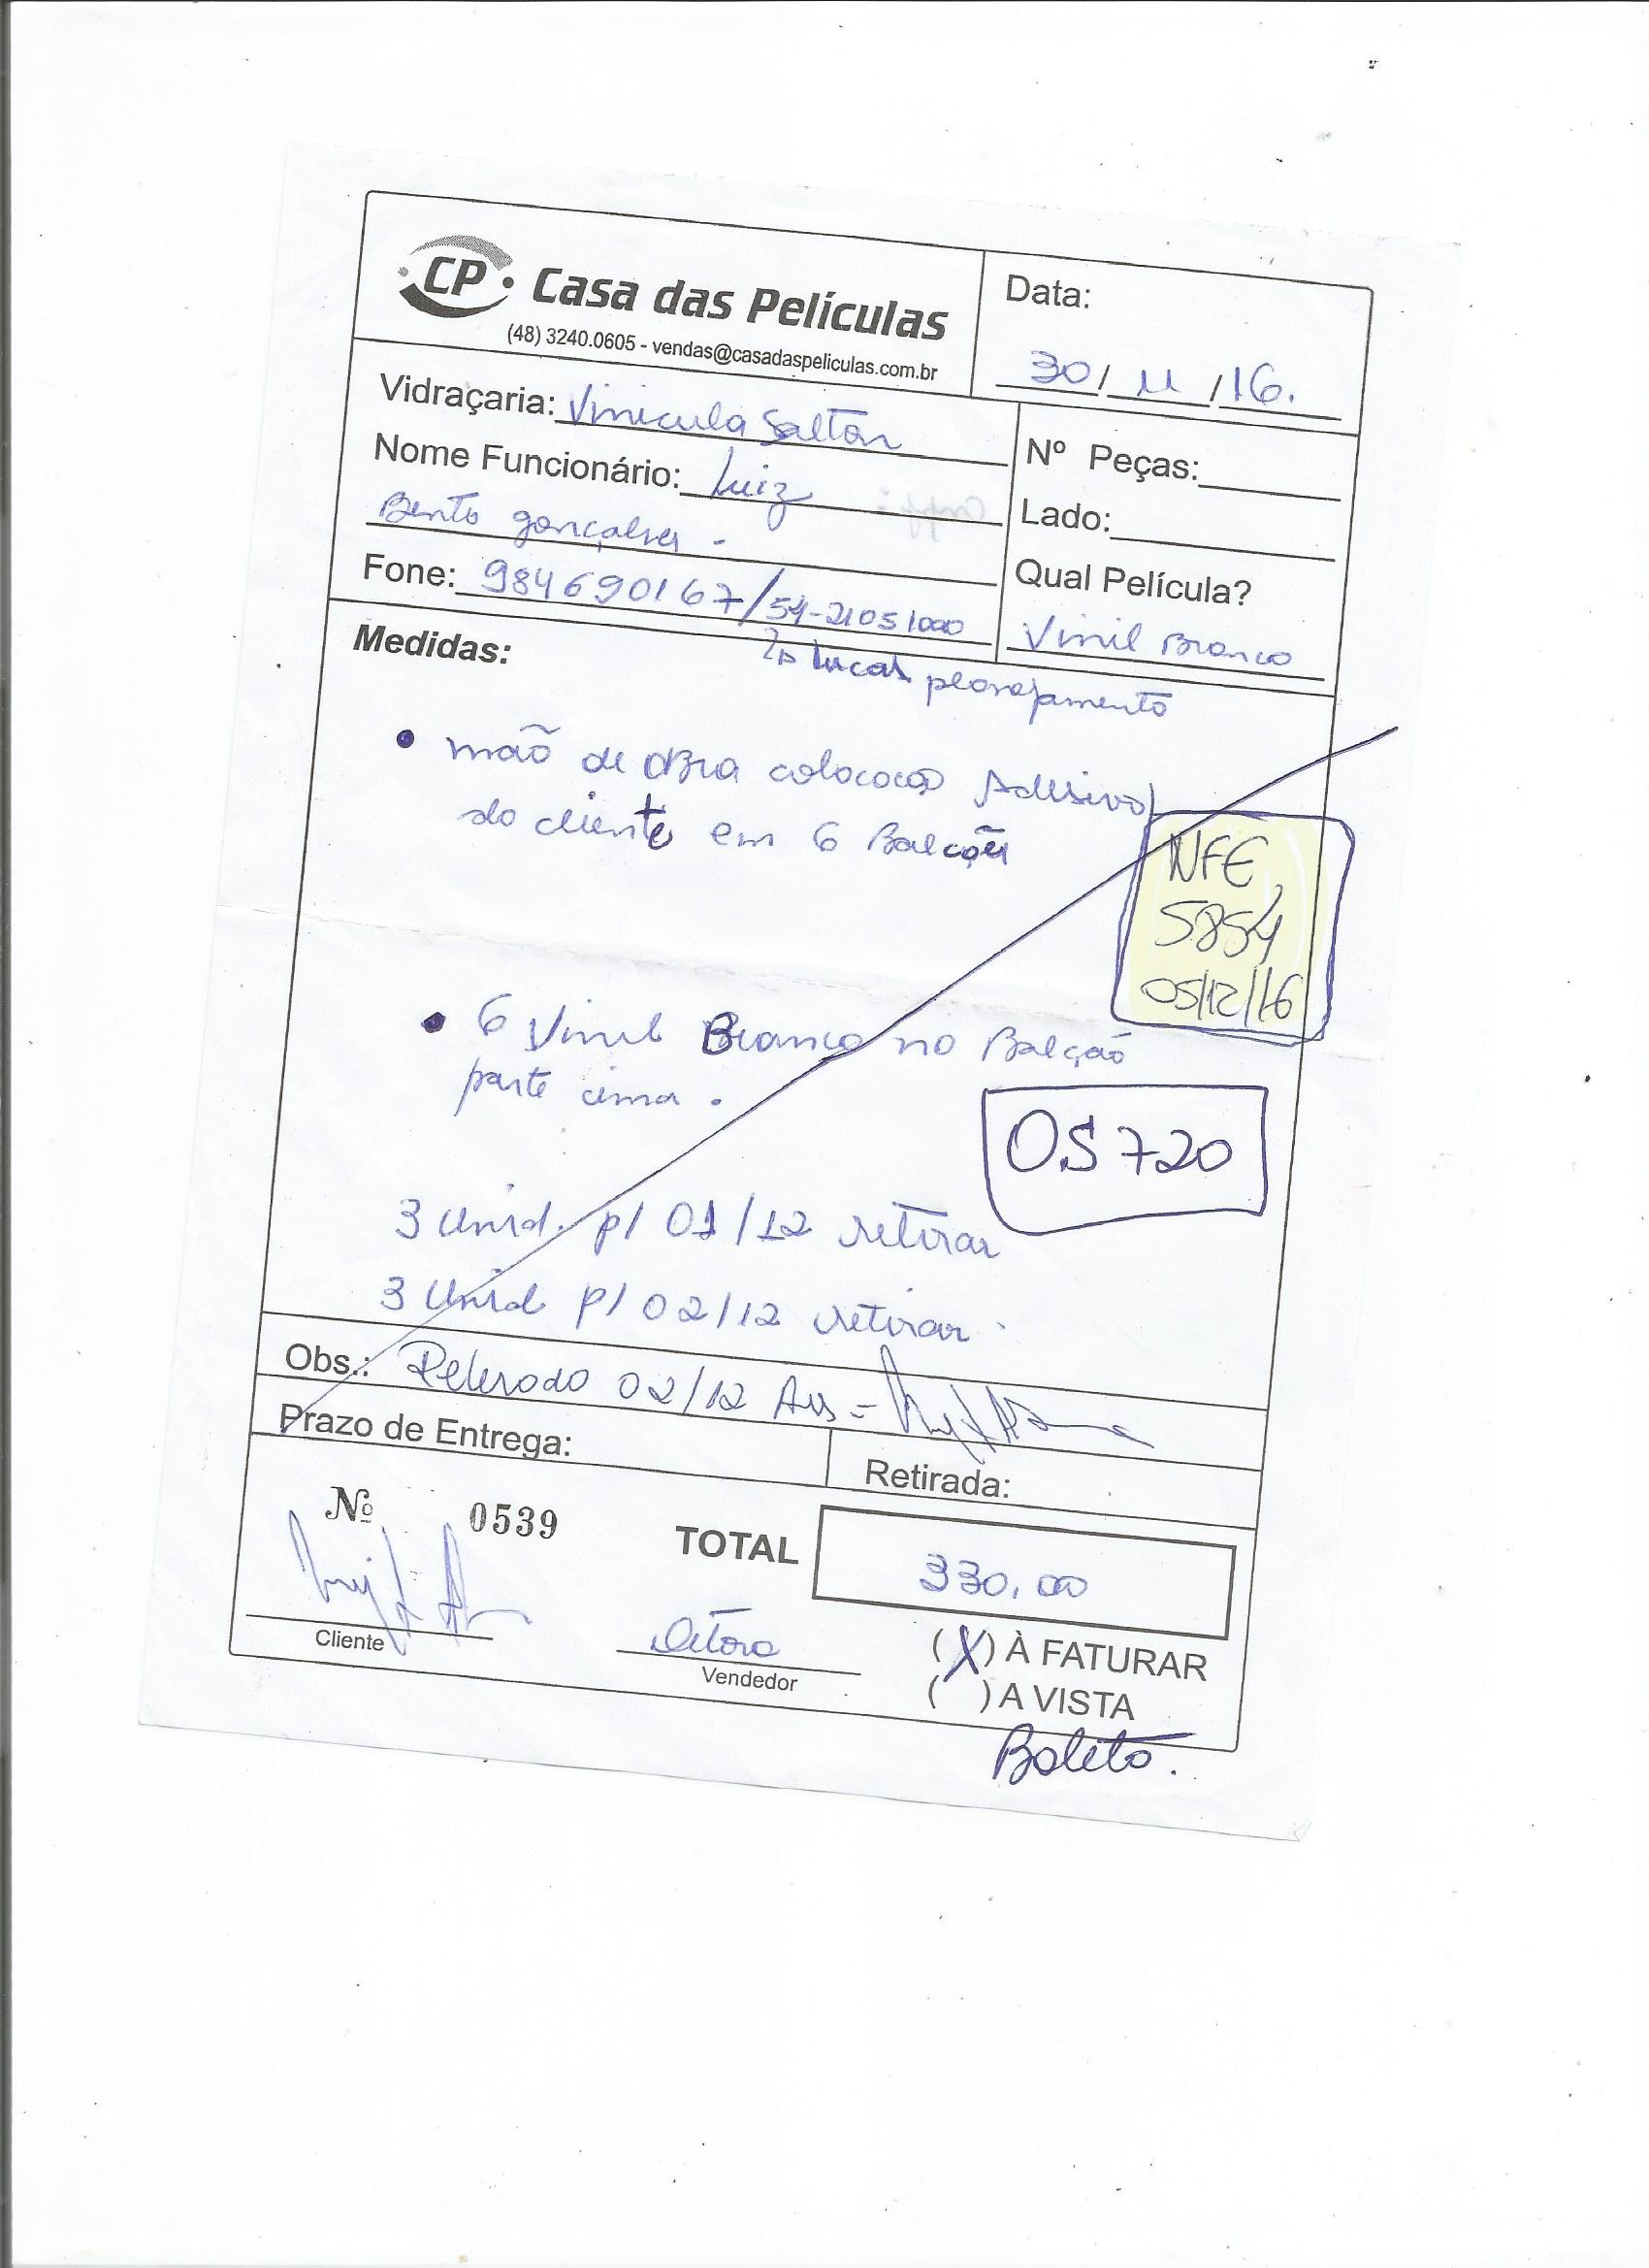 CP Casa das Películas
(48) 3240.0605 - vendas@casadaspeliculas.com.br
Data:
30/11/16.
Vidraçaria: Vinicula Salton
Nome Funcionário: Luiz
Bento gonçalves -
Fone: 984690167/54-21051000
Nº Peças:
Lado:
Qual Película?
Vinil Branco
Medidas:
Lucas planejamento
• mão de obra colocação Adesivo
do cliente em 6 Balcões
NFE
5854
05/12/16
• 6 Vinil Branco no Balcão
parte cima.
OS 720
3 Unid. p/ 01/12 retirar
3 Unid p/ 02/12 retirar
Obs.: 02/12 Ass =
Prazo de Entrega:
Retirada:
Nº 0539
TOTAL 330,00
Cliente
Vendedor
(X) À FATURAR
( ) A VISTA
Boleto.